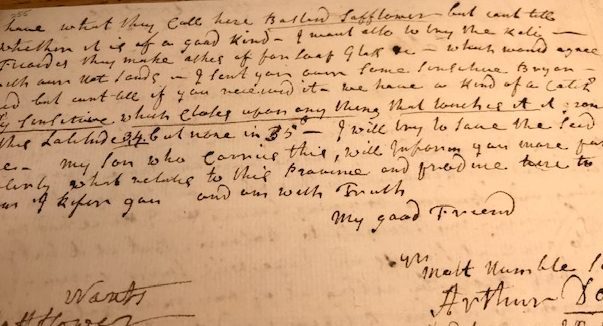 have what they call here Bastard Safflower but cant tell
whether it is of a good kind – I want also to buy the Kali –
they make ashes of for Soap Glass &c – which would agree
with our hot Sands – I sent you some Sensitive
and but cant tell if you received it – we have a kind of a Catch
Fly Sensitive which closes upon any thing that touches it it
this Latitude 34 but none in 35° – I will try to save the Seed
– my Son who carries this, will Inform you more
what relates to this Province and produce
as I Refer you and am with Truth
My good Friend
yrs
Most Humble
Arthur
Wants